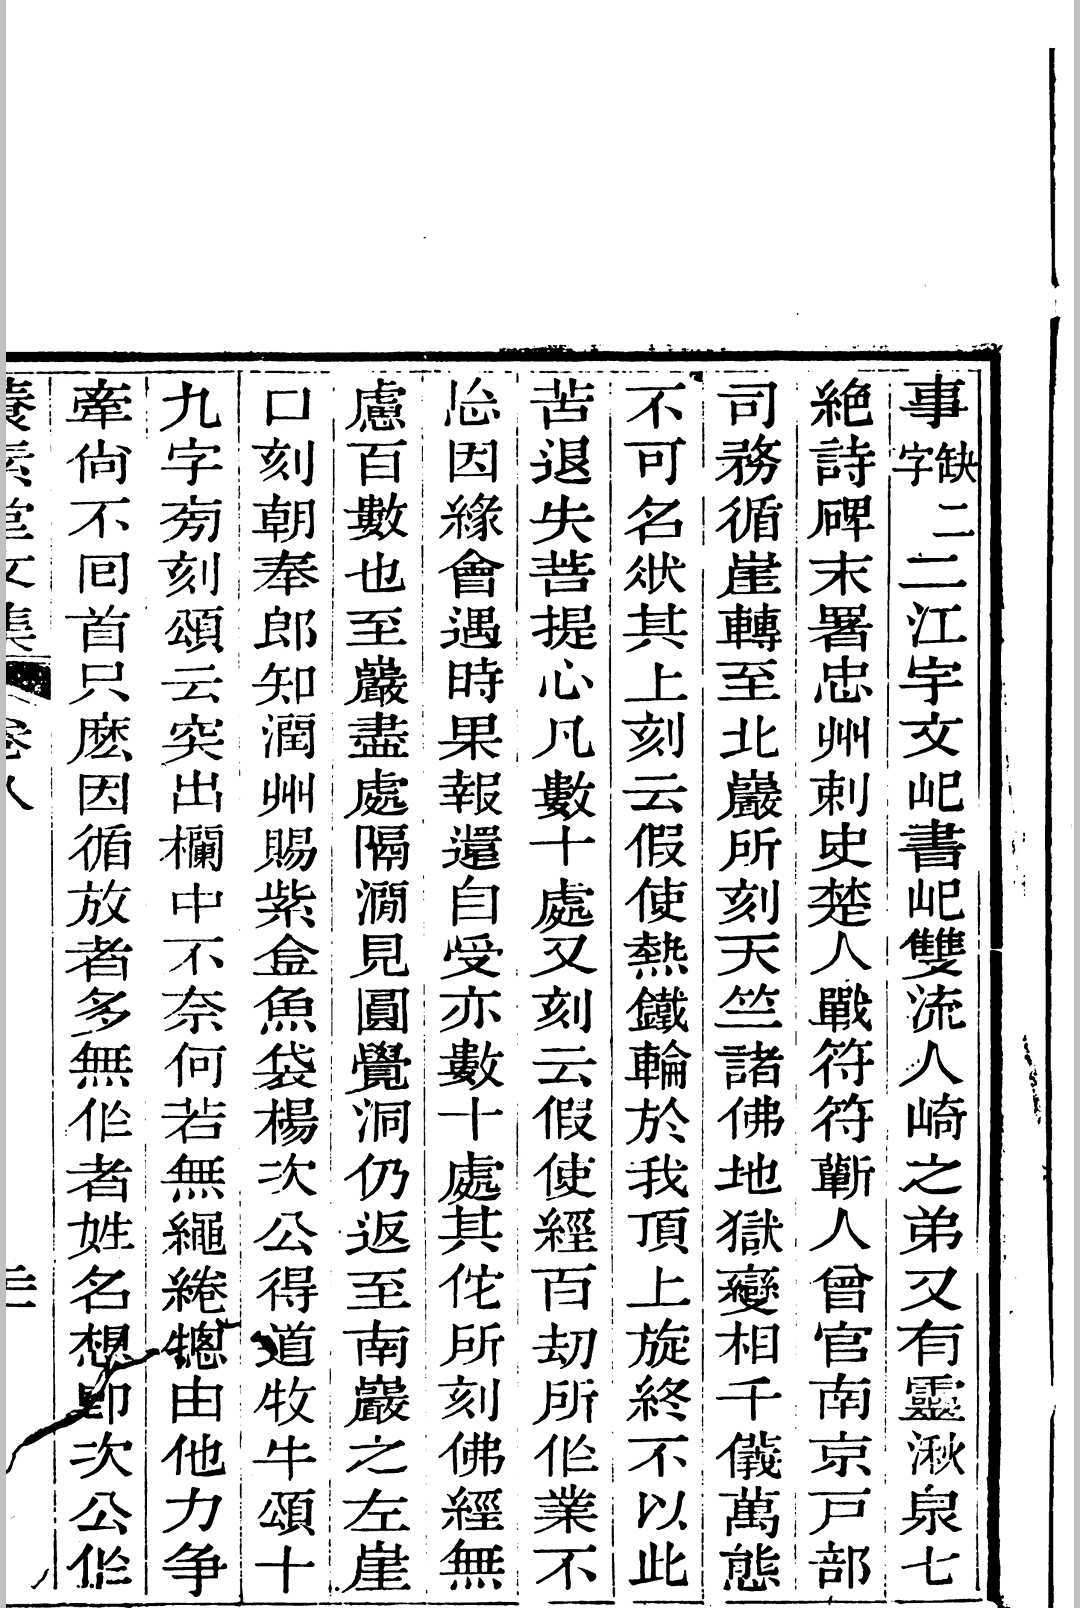 事缺二字二江宇文屺書屺雙流人崎之弟又有靈湫泉七
絶詩碑末署忠州刺史楚人戰符符蘄人曾官南京戸部
司務循崖轉至北巖所刻天竺諸佛地獄變相千儀萬態
不可名狀其上刻云假使熱鐵輪於我頂上旋終不以此
苦退失菩提心凡數十處又刻云假使經百劫所作業不
忘因緣會遇時果報還自受亦數十處其佗所刻佛經無
慮百數也至巖盡處隔澗見圓覺洞仍返至南巖之左崖
口刻朝奉郎知潤州賜紫金魚袋楊次公得道牧牛頌十
九字旁刻頌云突出欄中不奈何若無繩綣總由他力争
牽尙不回首只麽因循放者多無作者姓名想卽次公作
養素堂文集 卷八